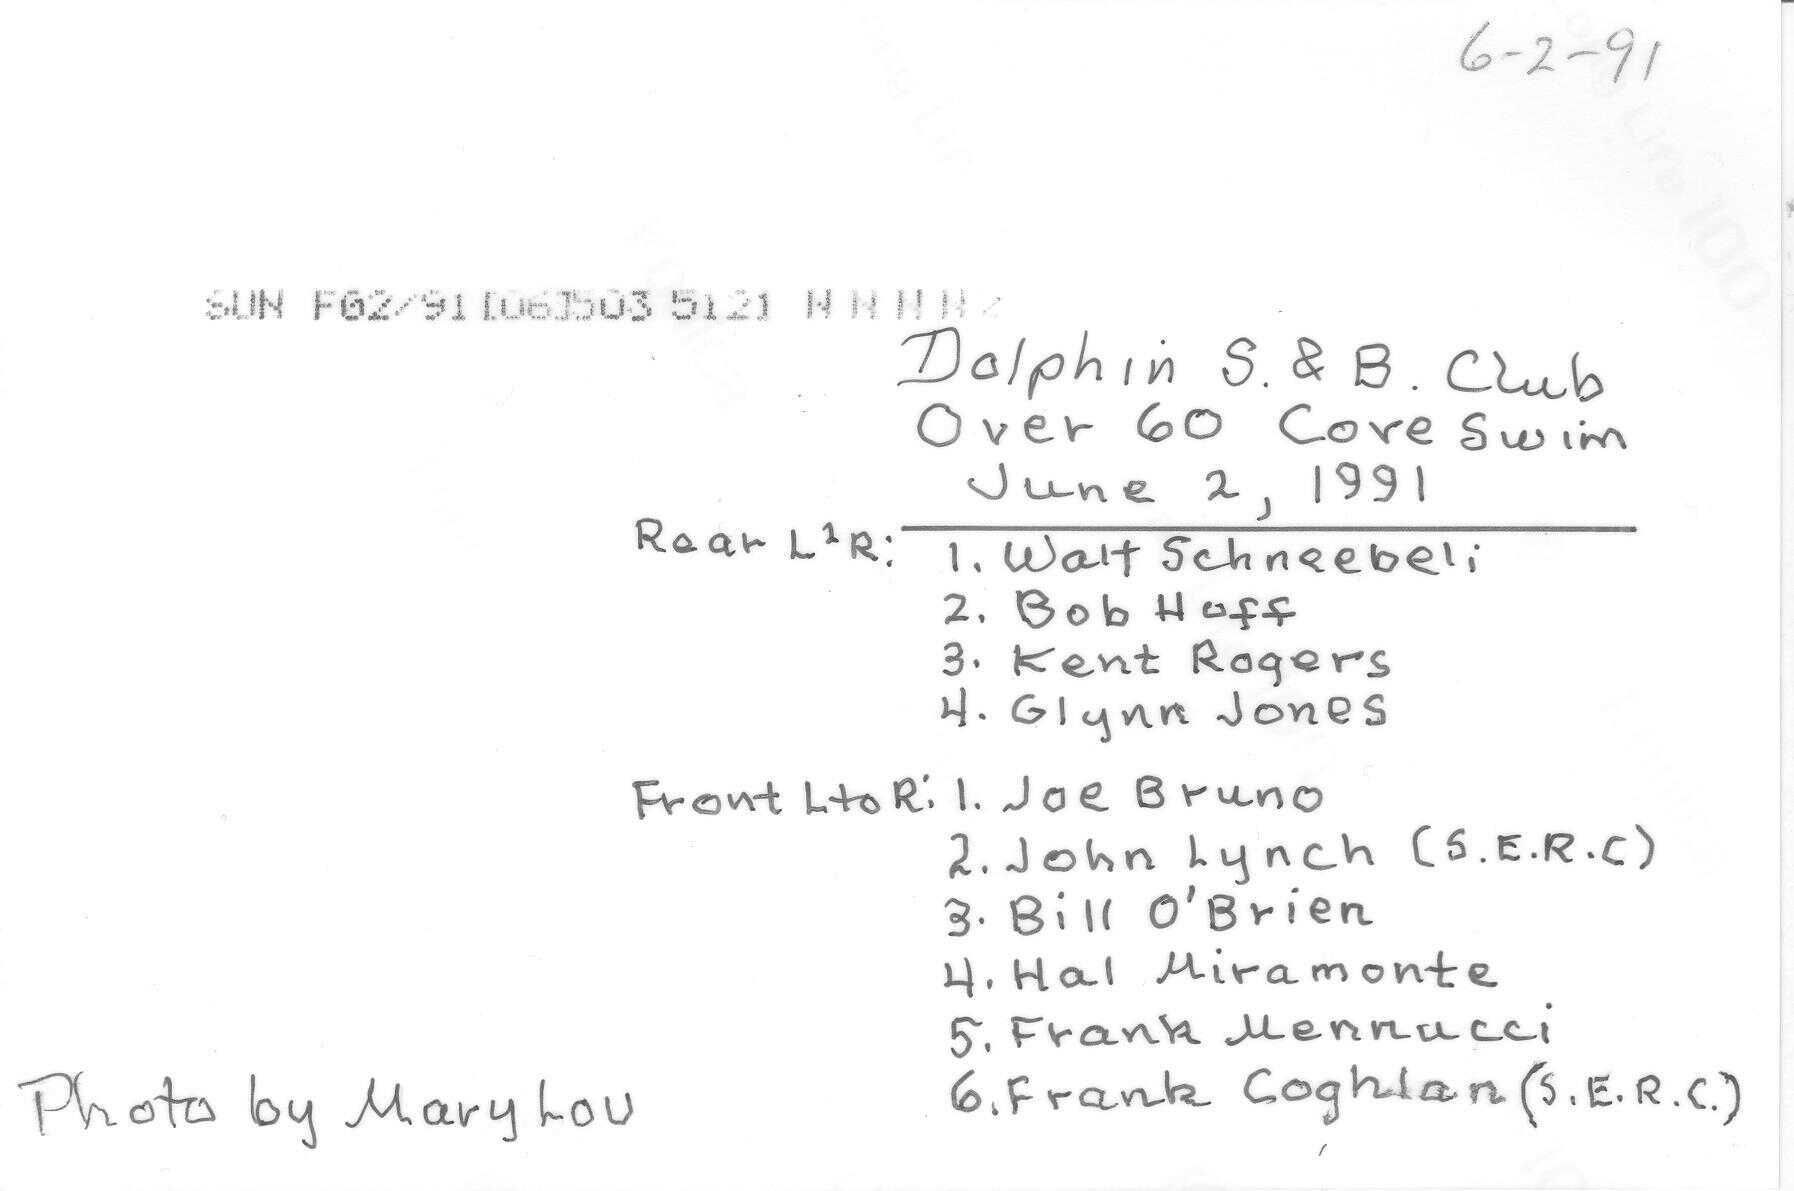 6-2-91
SUN F02/91 [06]503 5121 N N N N
Dolphin S. & B. Club
Over 60 Cove Swim
June 2, 1991
Rear L2R: 1. Walt Schneebeli
2. Bob Hoff
3. Kent Rogers
4. Glynn Jones
Front L to R: 1. Joe Bruno
2. John Lynch (S.E.R.C)
3. Bill O'Brien
4. Hal Miramonte
5. Frank Mennucci
6. Frank Coghlan (S.E.R.C.)
Photo by Mary Lou